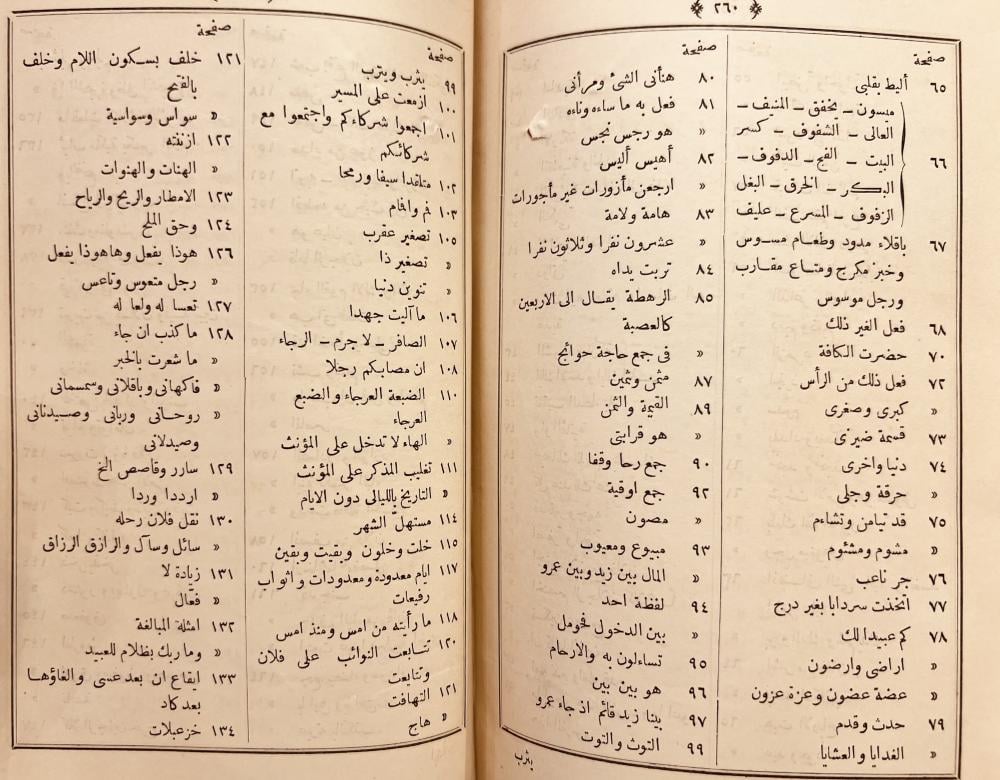 ٢٦٠
صفحة
٦٥ أليط بقلبى
ميسون ــ يخفق ــ المنيف ــ
العالى ــ الشفوف ــ كسر
٦٦ البيت ــ الفج ــ الدفوف ــ
البكر ــ الخرق ــ البغل
الزفوف ــ المسرع ــ عليف
٦٧ باقلاء مدود وطعام مسوس
وخبز مكرج ومتاع مقارب
ورجل موسوس
٦٨ فعل الغير ذلك
٧٠ حضرت الكافة
٧٢ فعل ذلك من الرأس
« كبرى وصغرى
٧٣ قسمة ضيزى
٧٤ دنيا واخرى
« حرقة وجلى
٧٥ قد تيامن وتشاءم
« مشوم ومشئوم
٧٦ جر ناعب
٧٧ اتخذت سردابا بغير درج
٧٨ كم عبيدا لك
« اراضى وارضون
« عضة عضون وعزة عزون
٧٩ حدث وقدم
« الغدايا والعشايا
صفحة
٨٠ هنأنى الشئ ومرأنى
٨١ فعل به ما ساءه وناءه
« هو رجس نجس
٨٢ أهيس أليس
« ارجعن مأزورات غير مأجورات
٨٣ هامة ولامة
« عشرون نفرا وثلاثون نفرا
٨٤ تربت يداه
٨٥ الرهطة يقال الى الاربعين
كالعصبة
« فى جمع حاجة حوائج
٨٧ مثمن وثمين
٨٩ القيمة والثمن
« هو قرابتى
٩٠ جمع رحا وقفا
٩٢ جمع اوقية
« مصون
٩٣ مبيوع ومعيوب
« المال بين زيد وبين عمرو
٩٤ لفظة احد
« بين الدخول فحومل
٩٥ تساءلون به والارحام
٩٦ هو بين بين
٩٧ بينا زيد قائم اذ جاء عمرو
٩٩ التوث والتوت
يثرب
صفحة
٩٩ يثرب ويترب
١٠٠ ازمعت على المسير
١٠١ اجمعوا شركاءكم واجتمعوا مع
شركائكم
١٠٢ متلقدا سيفا ورمحا
١٠٣ فم وافام
١٠٥ تصغير عقرب
« تصغير ذا
« تنوين دنيا
١٠٦ ما آليت جهدا
١٠٧ الصافر ــ لا جرم ــ الرجاء
١٠٨ ان مصابكم رجلا
١١٠ الضبعة العرجاء والضبع
العرجاء
« الهاء لا تدخل على المؤنث
١١١ تغليب المذكر على المؤنث
« التاريخ بالليالى دون الايام
١١٤ مستهلّ الشهر
١١٥ خلت وخلون وبقيت وبقين
١١٧ ايام معدودة ومعدودات واثواب
رفيعات
١١٨ ما رأيته من امس ومنذ امس
١٢٠ تتابعت النوائب على فلان
وتتايعت
١٢١ التهافت
« هاج
صفحة
١٢١ خلف بسكون اللام وخلف
بالفتح
« سواس وسواسية
١٢٢ ازننته
« الهنات والهنوات
١٢٣ الامطار والريح والرياح
١٢٤ وحق الملح
١٢٦ هوذا يفعل وهاهوذا يفعل
« رجل متعوس وتاعس
١٢٧ تعسا له ولعا له
١٢٨ ما كذب ان جاء
« ما شعرت بالخبر
« فاكهانى وباقلانى وسمسمانى
« روحانى وربانى وصيدنانى
وصيدلانى
١٢٩ سارر وقاصص الخ
« ارددا وردا
١٣٠ نقل فلان رحله
« سائل وسآل والرازق الرزاق
١٣١ زيادة لا
« فعّال
١٣٢ امثلة المبالغة
« وما ربك بظلام للعبيد
١٣٣ ايقاع ان بعد عسى والغاؤها
بعد كاد
١٣٤ خزعبلات